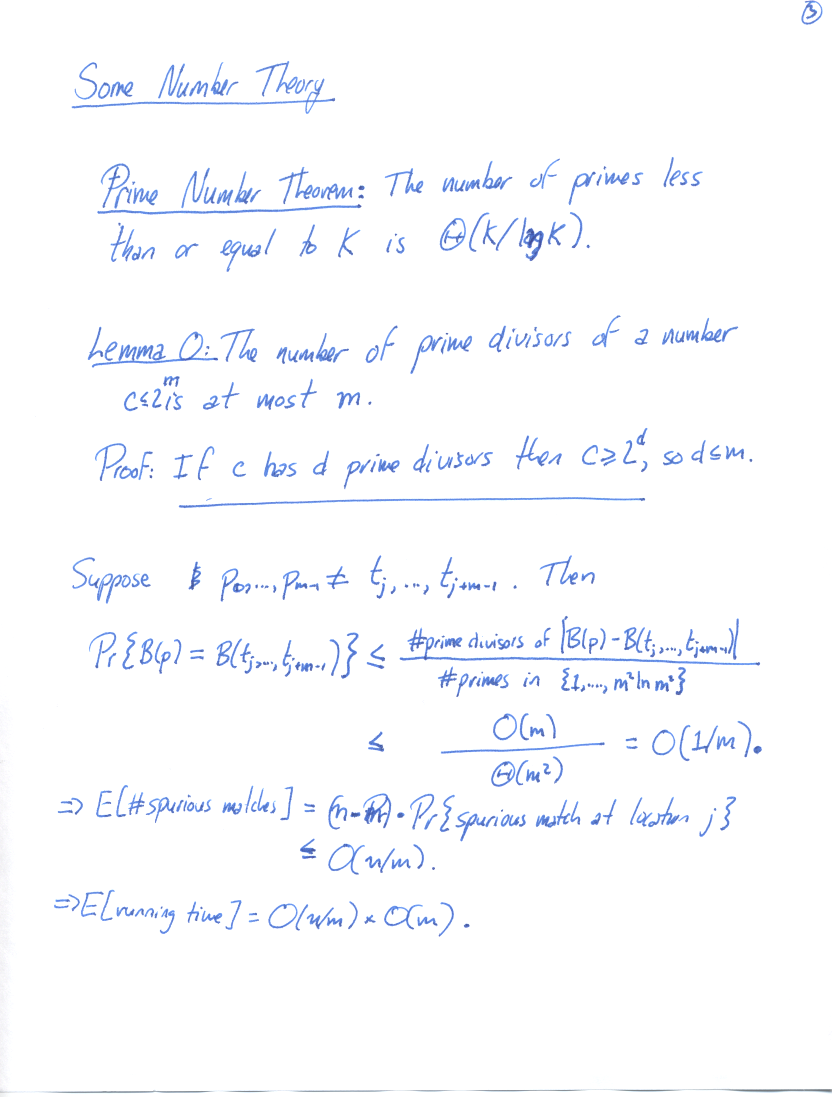 ③
Some Number Theory
Prime Number Theorem: The number of primes less
than or equal to K is Θ(K/log K).
Lemma 0: The number of prime divisors of a number
c≤2^m is at most m.
Proof: If c has d prime divisors then c≥2^d, so d≤m.
Suppose p_0,...,p_{m-1} ≠ t_j,...,t_{j+m-1}. Then
Pr{B(p) = B(t_j,...,t_{j+m-1})} ≤ #prime divisors of |B(p)-B(t_j,...,t_{j+m-1})| / #primes in {1,...,m² ln m²}
≤ O(m) / Θ(m²) = O(1/m).
⇒ E[#spurious matches] = (n-m)·Pr{spurious match at location j}
≤ O(n/m).
⇒E[running time] = O(n/m) × O(m).